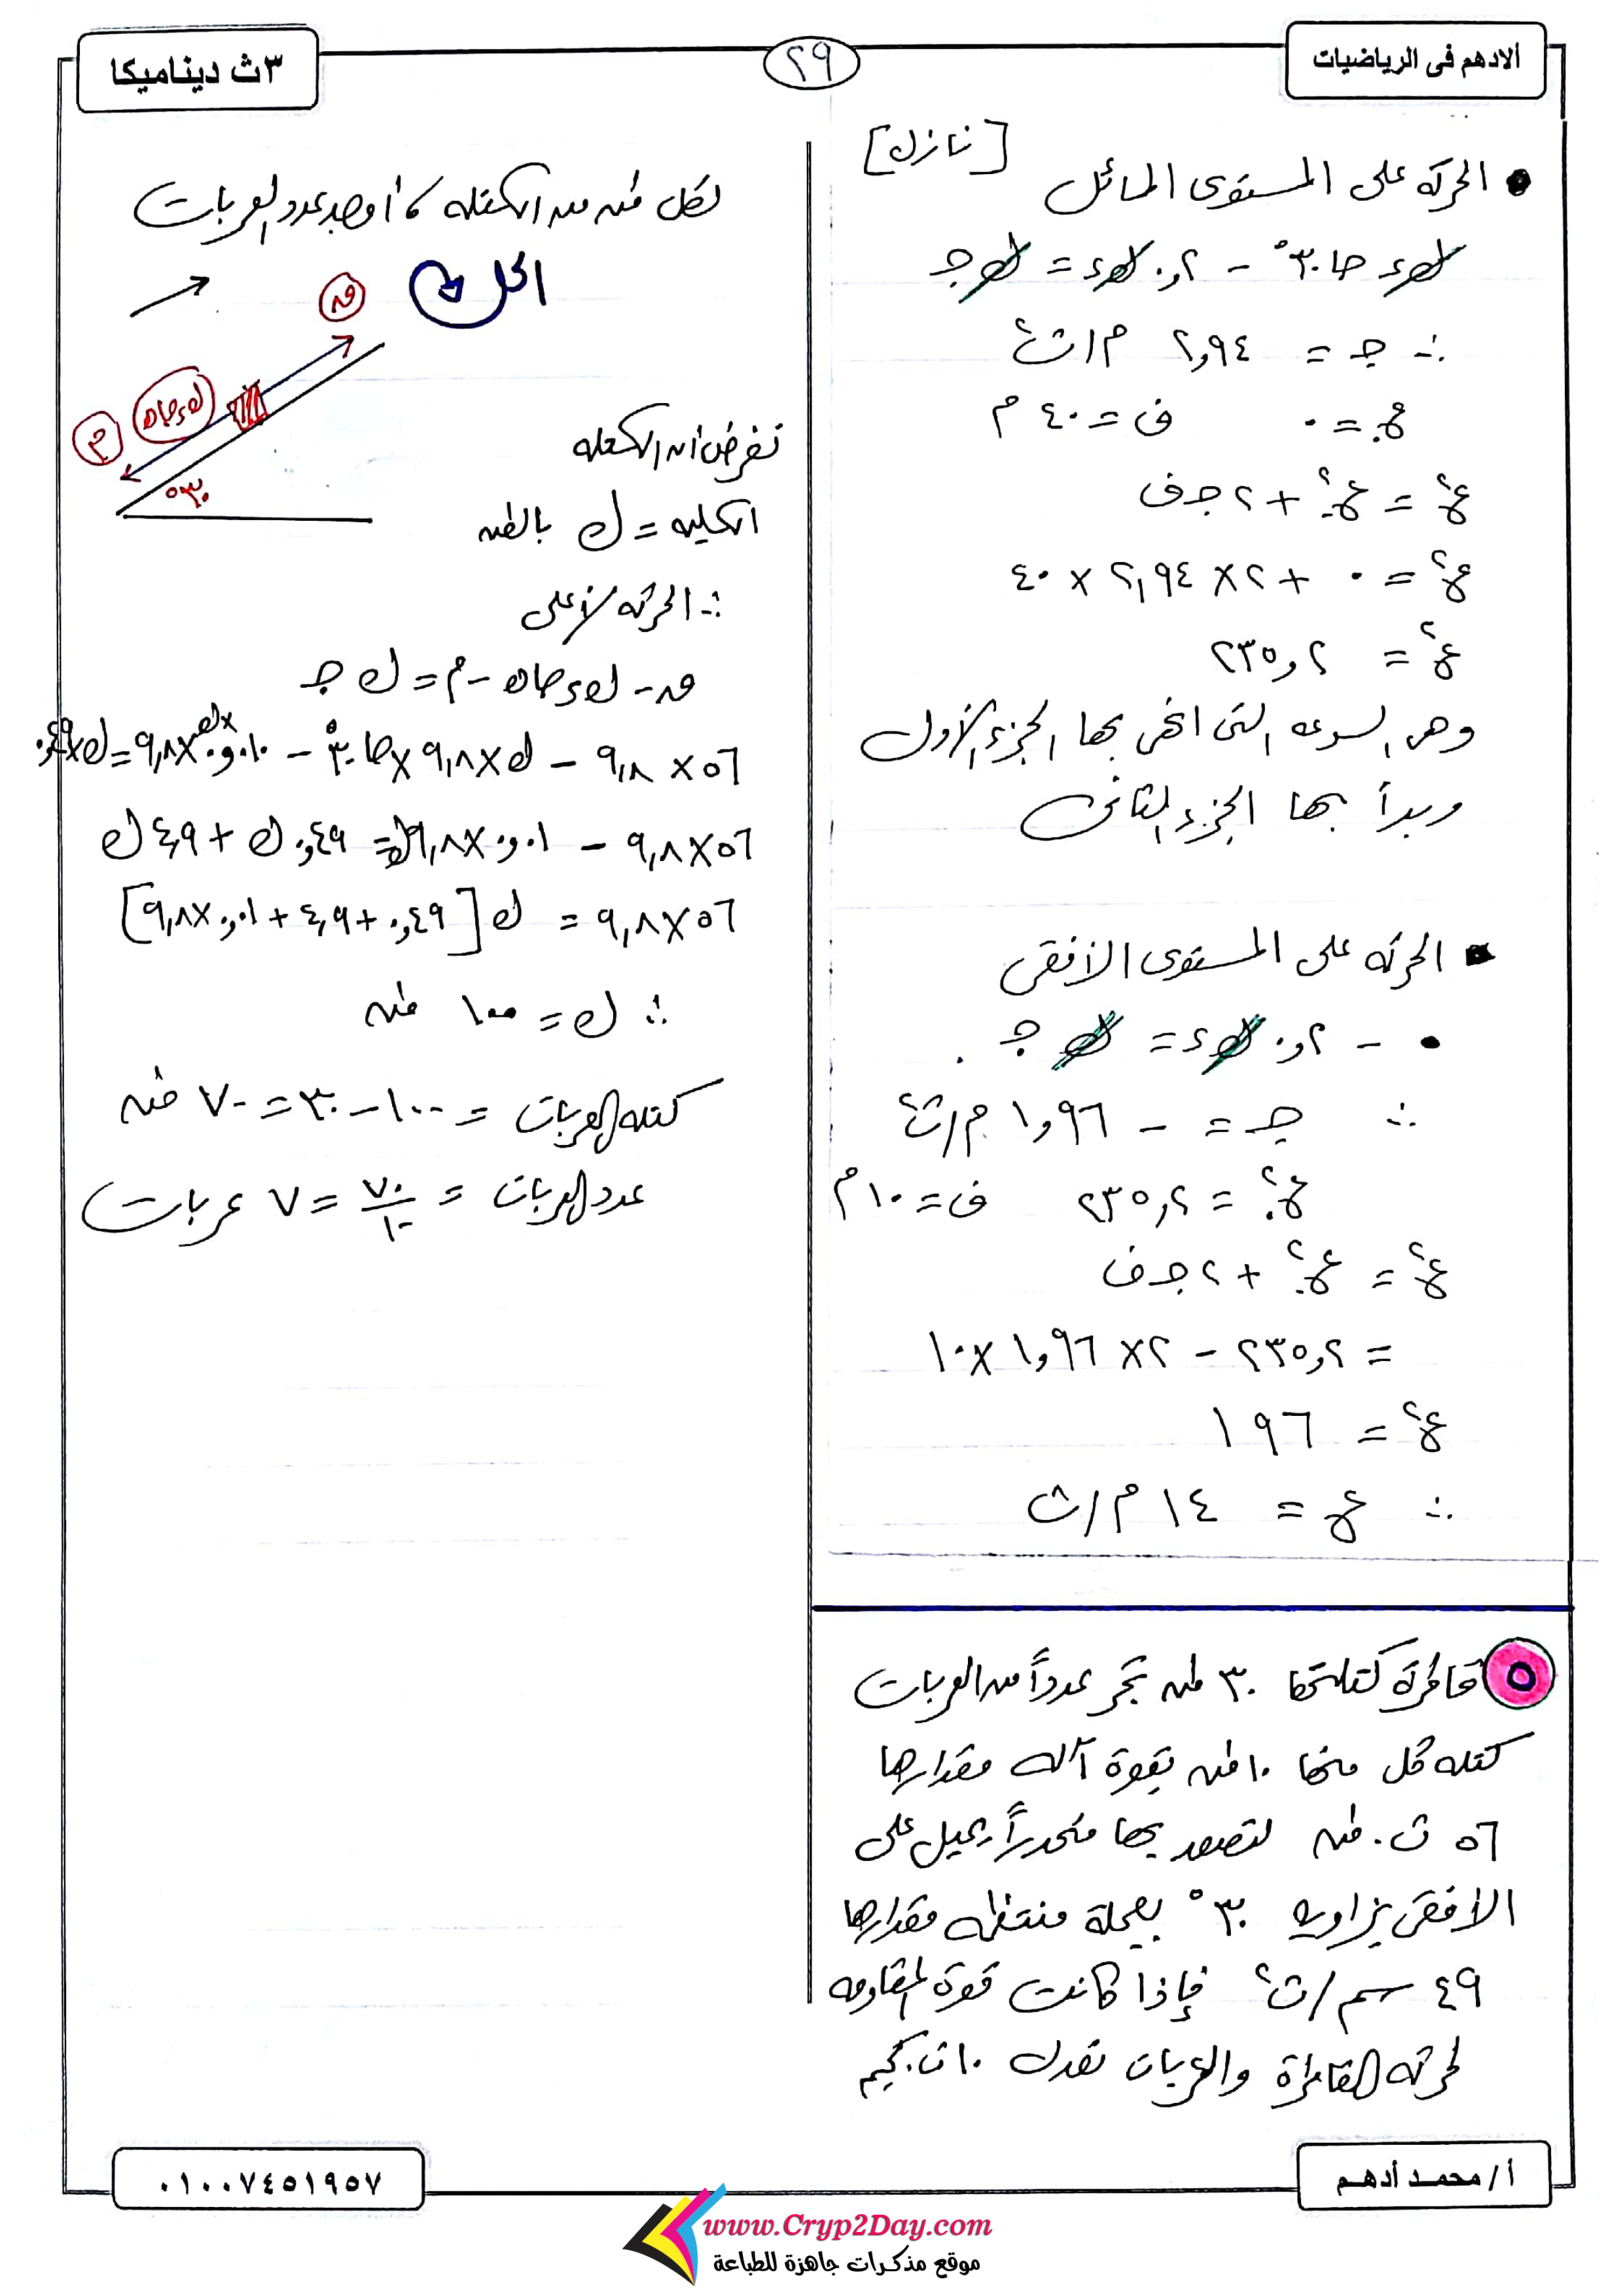 الادهم فى الرياضيات
٢٩
٣ث ديناميكا
• الحركة على المستوى المائل [نازل]
ك ء حا ٣٠° - ٠٫٢ ك ء = ك جـ
∴ جـ = ٢٫٩٤ م/ث٢
ع٠ = ٠ ف = ٤٠ م
ع٢ = ع٠٢ + ٢ جـ ف
ع٢ = ٠ + ٢ × ٢٫٩٤ × ٤٠
ع٢ = ٢٣٥٫٢
وهى السرعه التى انهى بها الجزء الأول
وبدأ بها الجزء الثانى
▪ الحركه على المستوى الافقى
٠ - ٠٫٢ ك ء = ك جـ
∴ جـ = - ١٫٩٦ م/ث٢
ع٠٢ = ٢٣٥٫٢ ف = ١٠ م
ع٢ = ع٠٢ + ٢ جـ ف
= ٢٣٥٫٢ - ٢ × ١٫٩٦ × ١٠
ع٢ = ١٩٦
∴ ع = ١٤ م/ث
٥ قاطرة كتلتها ٣٠ طن تجر عدداً من العربات
كتله كل منها ١٠ طن بقوة آله مقدارها
٥٦ ث.طن لتصعد بها منحدراً يميل على
الافقى بزاويه ٣٠° بعجلة منتظمه مقدارها
٤٩ سم/ث٢ فإذا كانت قوة المقاومه
لحركه القاطرة والعربات تعدل ١٠ ث.كجم
لكل طن من الكتله ، أوجد عدد العربات
الحل
ق
ك ء حا هـ
م
٣٠°
نفرض أن الكتله
الكليه = ك بالطن
∵ الحركه لأعلى
ق - ك ء حا هـ - م = ك جـ
٥٦ × ٩٫٨ - ك × ٩٫٨ × حا ٣٠° - ٠٫٠١ × ٩٫٨ × ك = ك × ٠٫٤٩
٥٦ × ٩٫٨ - ٠٫٠١ × ٩٫٨ ك = ٠٫٤٩ ك + ٤٫٩ ك
٥٦ × ٩٫٨ = ك [٠٫٤٩ + ٤٫٩ + ٠٫٠١ × ٩٫٨]
∴ ك = ١٠٠ طن
كتله العربات = ١٠٠ - ٣٠ = ٧٠ طن
عدد العربات = ٧٠/١٠ = ٧ عربات
أ / محمد أدهم
٠١٠٠٧٤٥١٩٥٧
www.Cryp2Day.com
موقع مذكرات جاهزة للطباعة